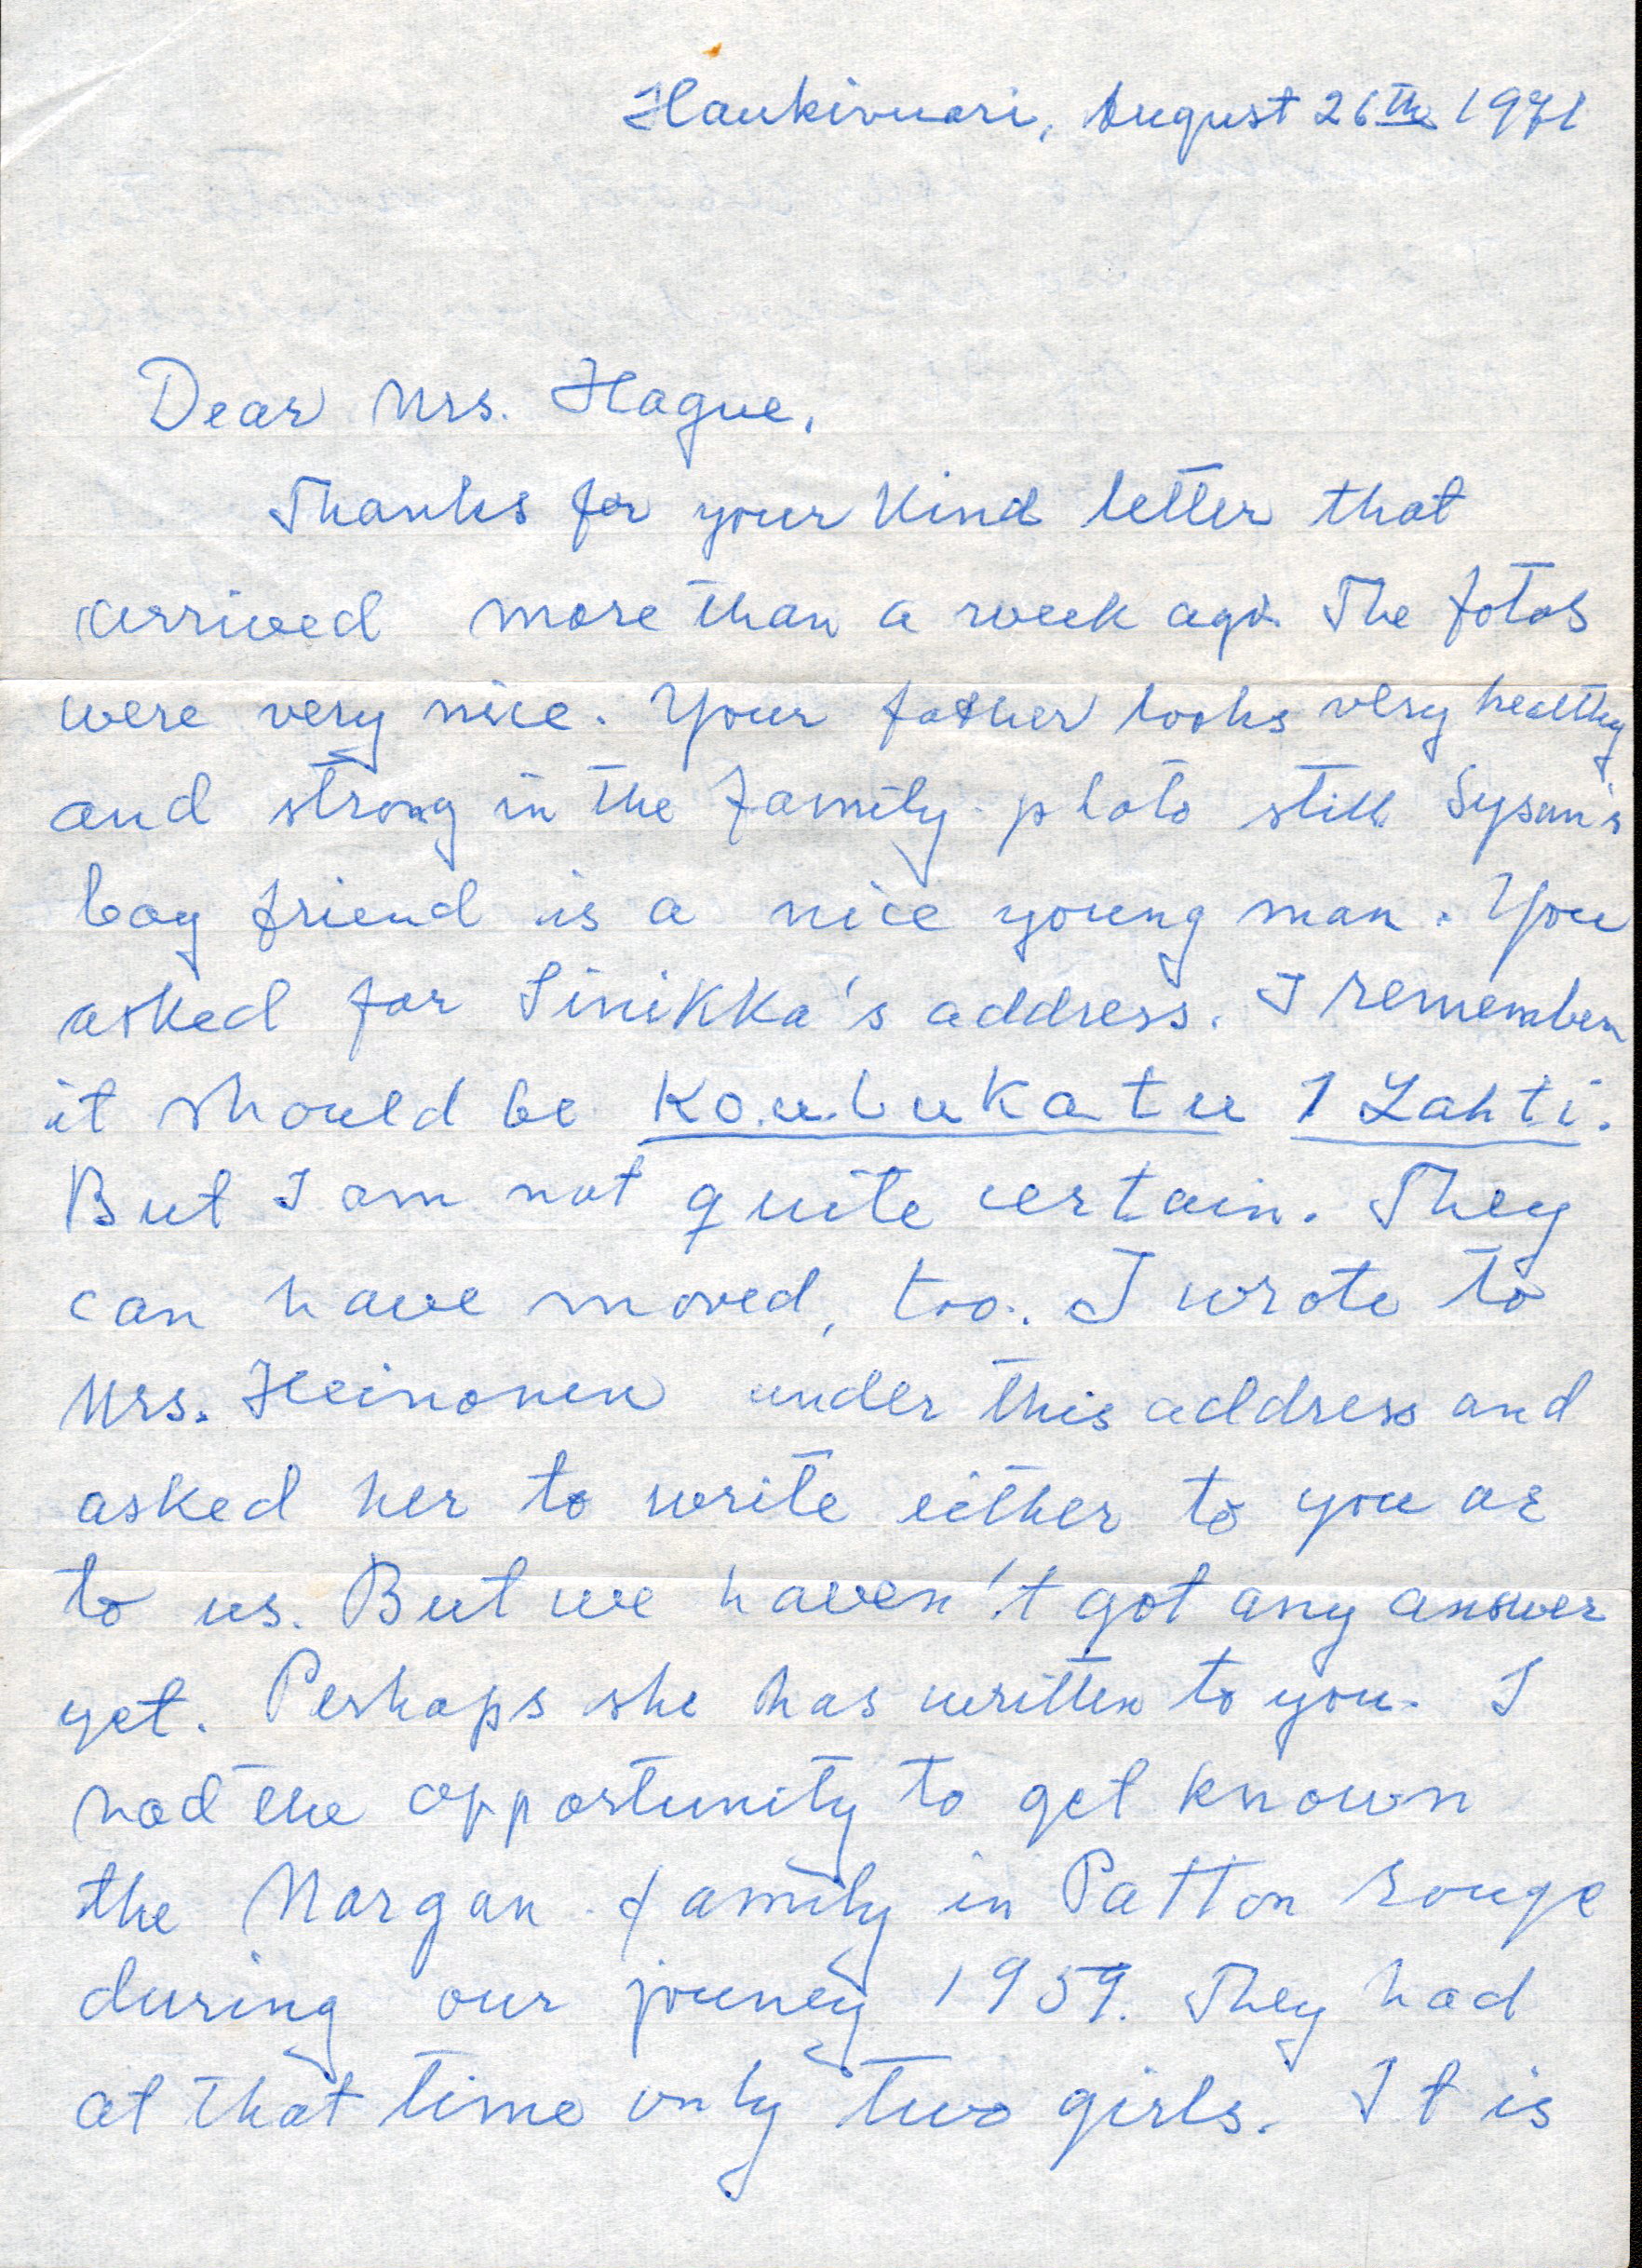 Haukivuori, August 26th 1971
Dear Mrs. Hague,
Thanks for your kind letter that
arrived more than a week ago. The fotos
were very nice. Your father looks very healthy
and strong in the family-photo still. Sysan's
boy friend is a nice young man. You
asked for Sinikka's address. I remember
it should be Koulukatu 1 Lahti.
But I am not quite certain. They
can have moved, too. I wrote to
Mrs. Heinonen under this address and
asked her to write either to you or
to us. But we haven't got any answer
yet. Perhaps she has written to you. I
had the opportunity to get known
the Morgan-family in Patton Rouge
during our jouney 1959. They had
at that time only two girls. It is